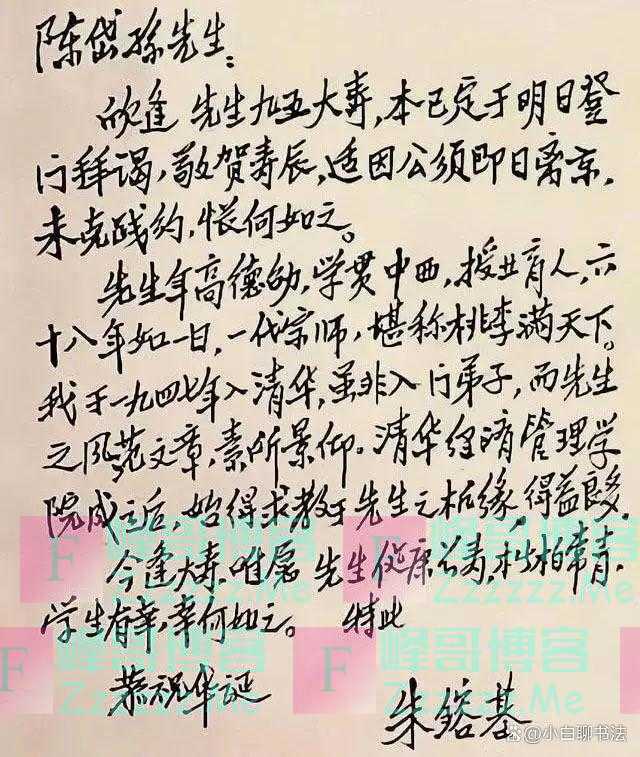 陈岱孙先生:
欣逢 先生九五大寿,本已定于明日登
门拜谒,敬贺寿辰,适因公须即日离京,
未克践约,怅何如之。
先生年高德劭,学贯中西,授业育人,六
十八年如一日,一代宗师,堪称桃李满天下。
我于一九四七年入清华,虽非入门弟子,而先生
之风范文章,素所景仰。清华经济管理学
院成立后,始得求教于先生之机缘,得益良多。
今逢大寿,唯愿 先生健康长寿,松柏常青,
学生有幸,幸何如之。 特此
恭祝华诞
朱镕基
F 峰哥博客
Zzzzzz.Me
F 峰哥博客
Zzzzzz.Me
F 峰哥博客
Zzzzzz.Me
F 峰哥博客
Zzzzzz.Me
@小白聊书法